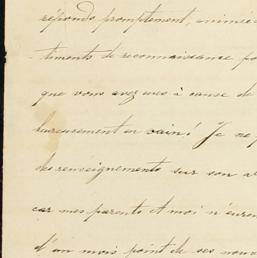 réponds promptement, animée
timents de reconnaissance po
que vous avez eues à cause de
heureusement en vain! Je ne p
des renseignements sur son a
car mes parents et moi n'euron
d'un mois point de ses nouv